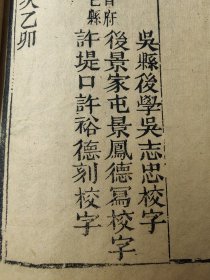 吳縣後學吳志忠校字
後景家屯景鳳德冩校字
許堤口許裕德刻校字
府
縣
乙卯